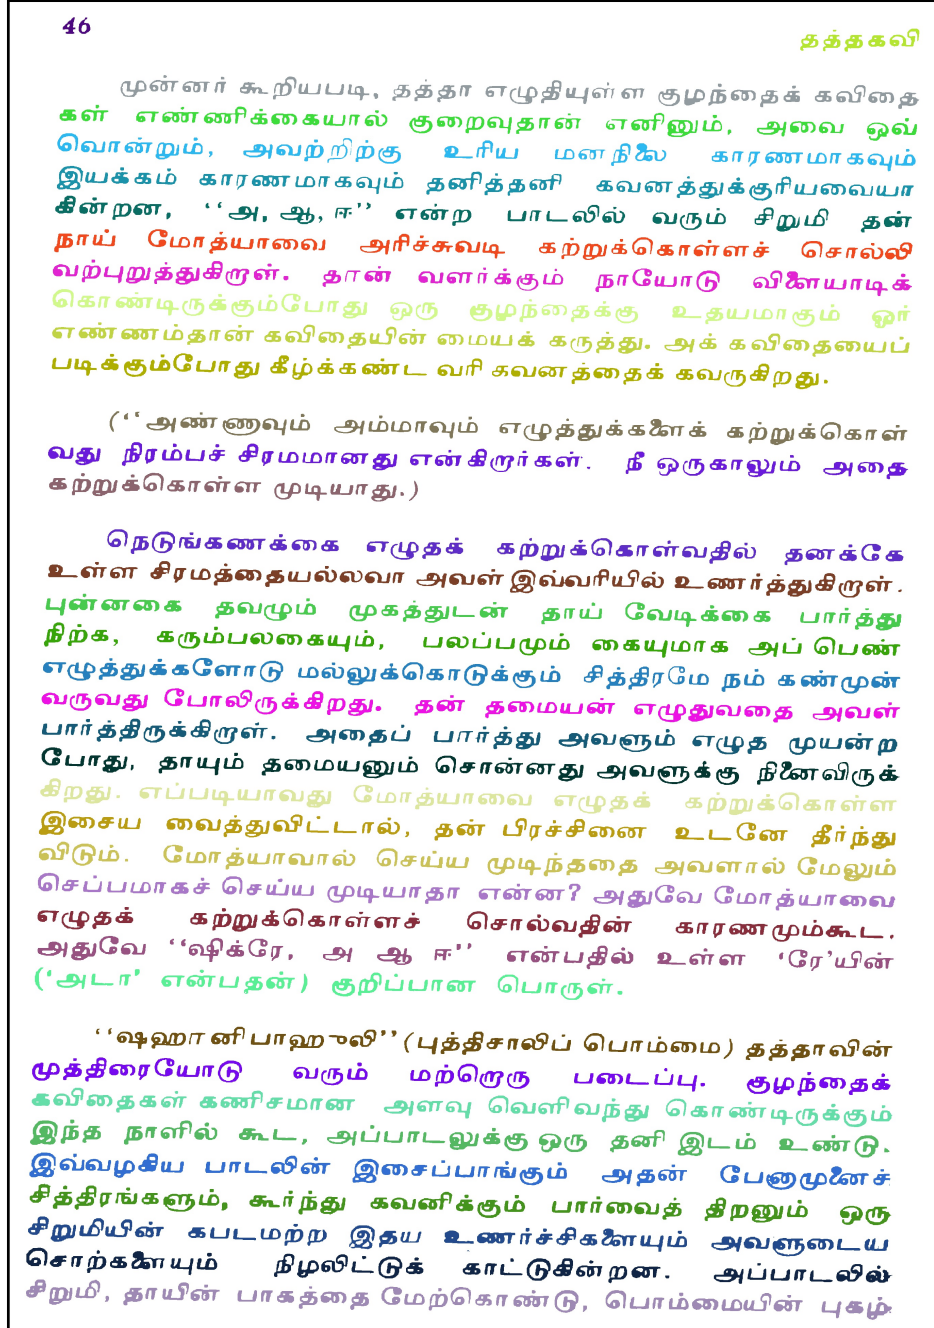 46
தத்தகவி
முன்னர் கூறியபடி, தத்தா எழுதியுள்ள குழந்தைக் கவிதை
கள் எண்ணிக்கையால் குறைவுதான் எனினும், அவை ஒவ்
வொன்றும், அவற்றிற்கு உரிய மனநிலை காரணமாகவும்
இயக்கம் காரணமாகவும் தனித்தனி கவனத்துக்குரியவையா
கின்றன, ‘‘அ, ஆ, ஈ’’ என்ற பாடலில் வரும் சிறுமி தன்
நாய் மோத்யாவை அரிச்சுவடி கற்றுக்கொள்ளச் சொல்லி
வற்புறுத்துகிறாள். தான் வளர்க்கும் நாயோடு விளையாடிக்
கொண்டிருக்கும்போது ஒரு குழந்தைக்கு உதயமாகும் ஓர்
எண்ணம்தான் கவிதையின் மையக் கருத்து. அக் கவிதையைப்
படிக்கும்போது கீழ்க்கண்ட வரி கவனத்தைக் கவருகிறது.
(‘‘அண்ணாவும் அம்மாவும் எழுத்துக்களைக் கற்றுக்கொள்
வது நிரம்பச் சிரமமானது என்கிறார்கள். நீ ஒருகாலும் அதை
கற்றுக்கொள்ள முடியாது.)
நெடுங்கணக்கை எழுதக் கற்றுக்கொள்வதில் தனக்கே
உள்ள சிரமத்தையல்லவா அவள் இவ்வரியில் உணர்த்துகிறாள்.
புன்னகை தவழும் முகத்துடன் தாய் வேடிக்கை பார்த்து
நிற்க, கரும்பலகையும், பலப்பமும் கையுமாக அப் பெண்
எழுத்துக்களோடு மல்லுக்கொடுக்கும் சித்திரமே நம் கண்முன்
வருவது போலிருக்கிறது. தன் தமையன் எழுதுவதை அவள்
பார்த்திருக்கிறாள். அதைப் பார்த்து அவளும் எழுத முயன்ற
போது, தாயும் தமையனும் சொன்னது அவளுக்கு நினைவிருக்
கிறது. எப்படியாவது மோத்யாவை எழுதக் கற்றுக்கொள்ள
இசைய வைத்துவிட்டால், தன் பிரச்சினை உடனே தீர்ந்து
விடும். மோத்யாவால் செய்ய முடிந்ததை அவளால் மேலும்
செப்பமாகச் செய்ய முடியாதா என்ன? அதுவே மோத்யாவை
எழுதக் கற்றுக்கொள்ளச் சொல்வதின் காரணமும்கூட.
அதுவே ‘‘ஷிக்ரே, அ ஆ ஈ’’ என்பதில் உள்ள ‘ரே’யின்
(‘அடா’ என்பதன்) குறிப்பான பொருள்.
‘‘ஷஹானிபாஹுலி’’ (புத்திசாலிப் பொம்மை) தத்தாவின்
முத்திரையோடு வரும் மற்றொரு படைப்பு. குழந்தைக்
கவிதைகள் கணிசமான அளவு வெளிவந்து கொண்டிருக்கும்
இந்த நாளில் கூட, அப்பாடலுக்கு ஒரு தனி இடம் உண்டு.
இவ்வழகிய பாடலின் இசைப்பாங்கும் அதன் பேனாமுனைச்
சித்திரங்களும், கூர்ந்து கவனிக்கும் பார்வைத் திறனும் ஒரு
சிறுமியின் கபடமற்ற இதய உணர்ச்சிகளையும் அவளுடைய
சொற்களையும் நிழலிட்டுக் காட்டுகின்றன. அப்பாடலில்
சிறுமி, தாயின் பாகத்தை மேற்கொண்டு, பொம்மையின் புகழ்